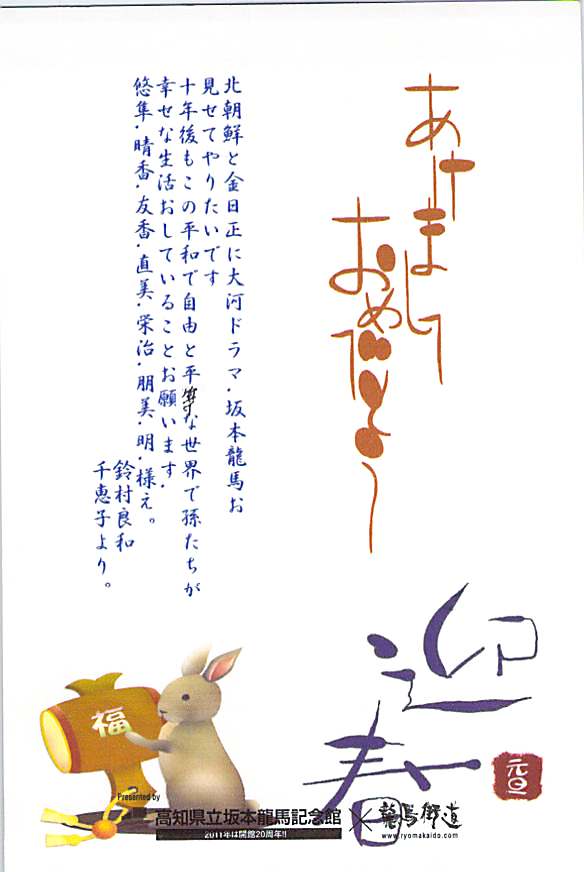 あけまして
おめでとう
迎春
元旦
北朝鮮と金日正に大河ドラマ・坂本龍馬お
見せてやりたいです
十年後もこの平和で自由と平等な世界で孫たちが
幸せな生活おしていることお願います.
悠隼・晴香・友香・直美・栄治・朋美・明・様え。
鈴村良和
千恵子より。
福
Presented by
高知県立坂本龍馬記念館 × 龍馬街道
2011年は開館20周年!!
www.ryomakaido.com